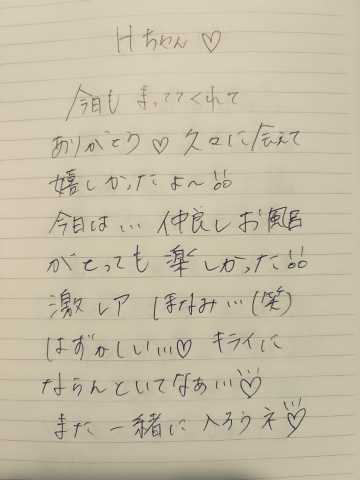 Hちゃん♡
今日も まっててくれて
ありがとう♡ 久々に会えて
嬉しかったよ〜!!
今日は… 仲良しお風呂
がとっても楽しかった!!
激レア ほなみ…(笑)
はずかしい…♡ キライに
ならんといてなぁ…♡
また一緒に入ろうネ♡